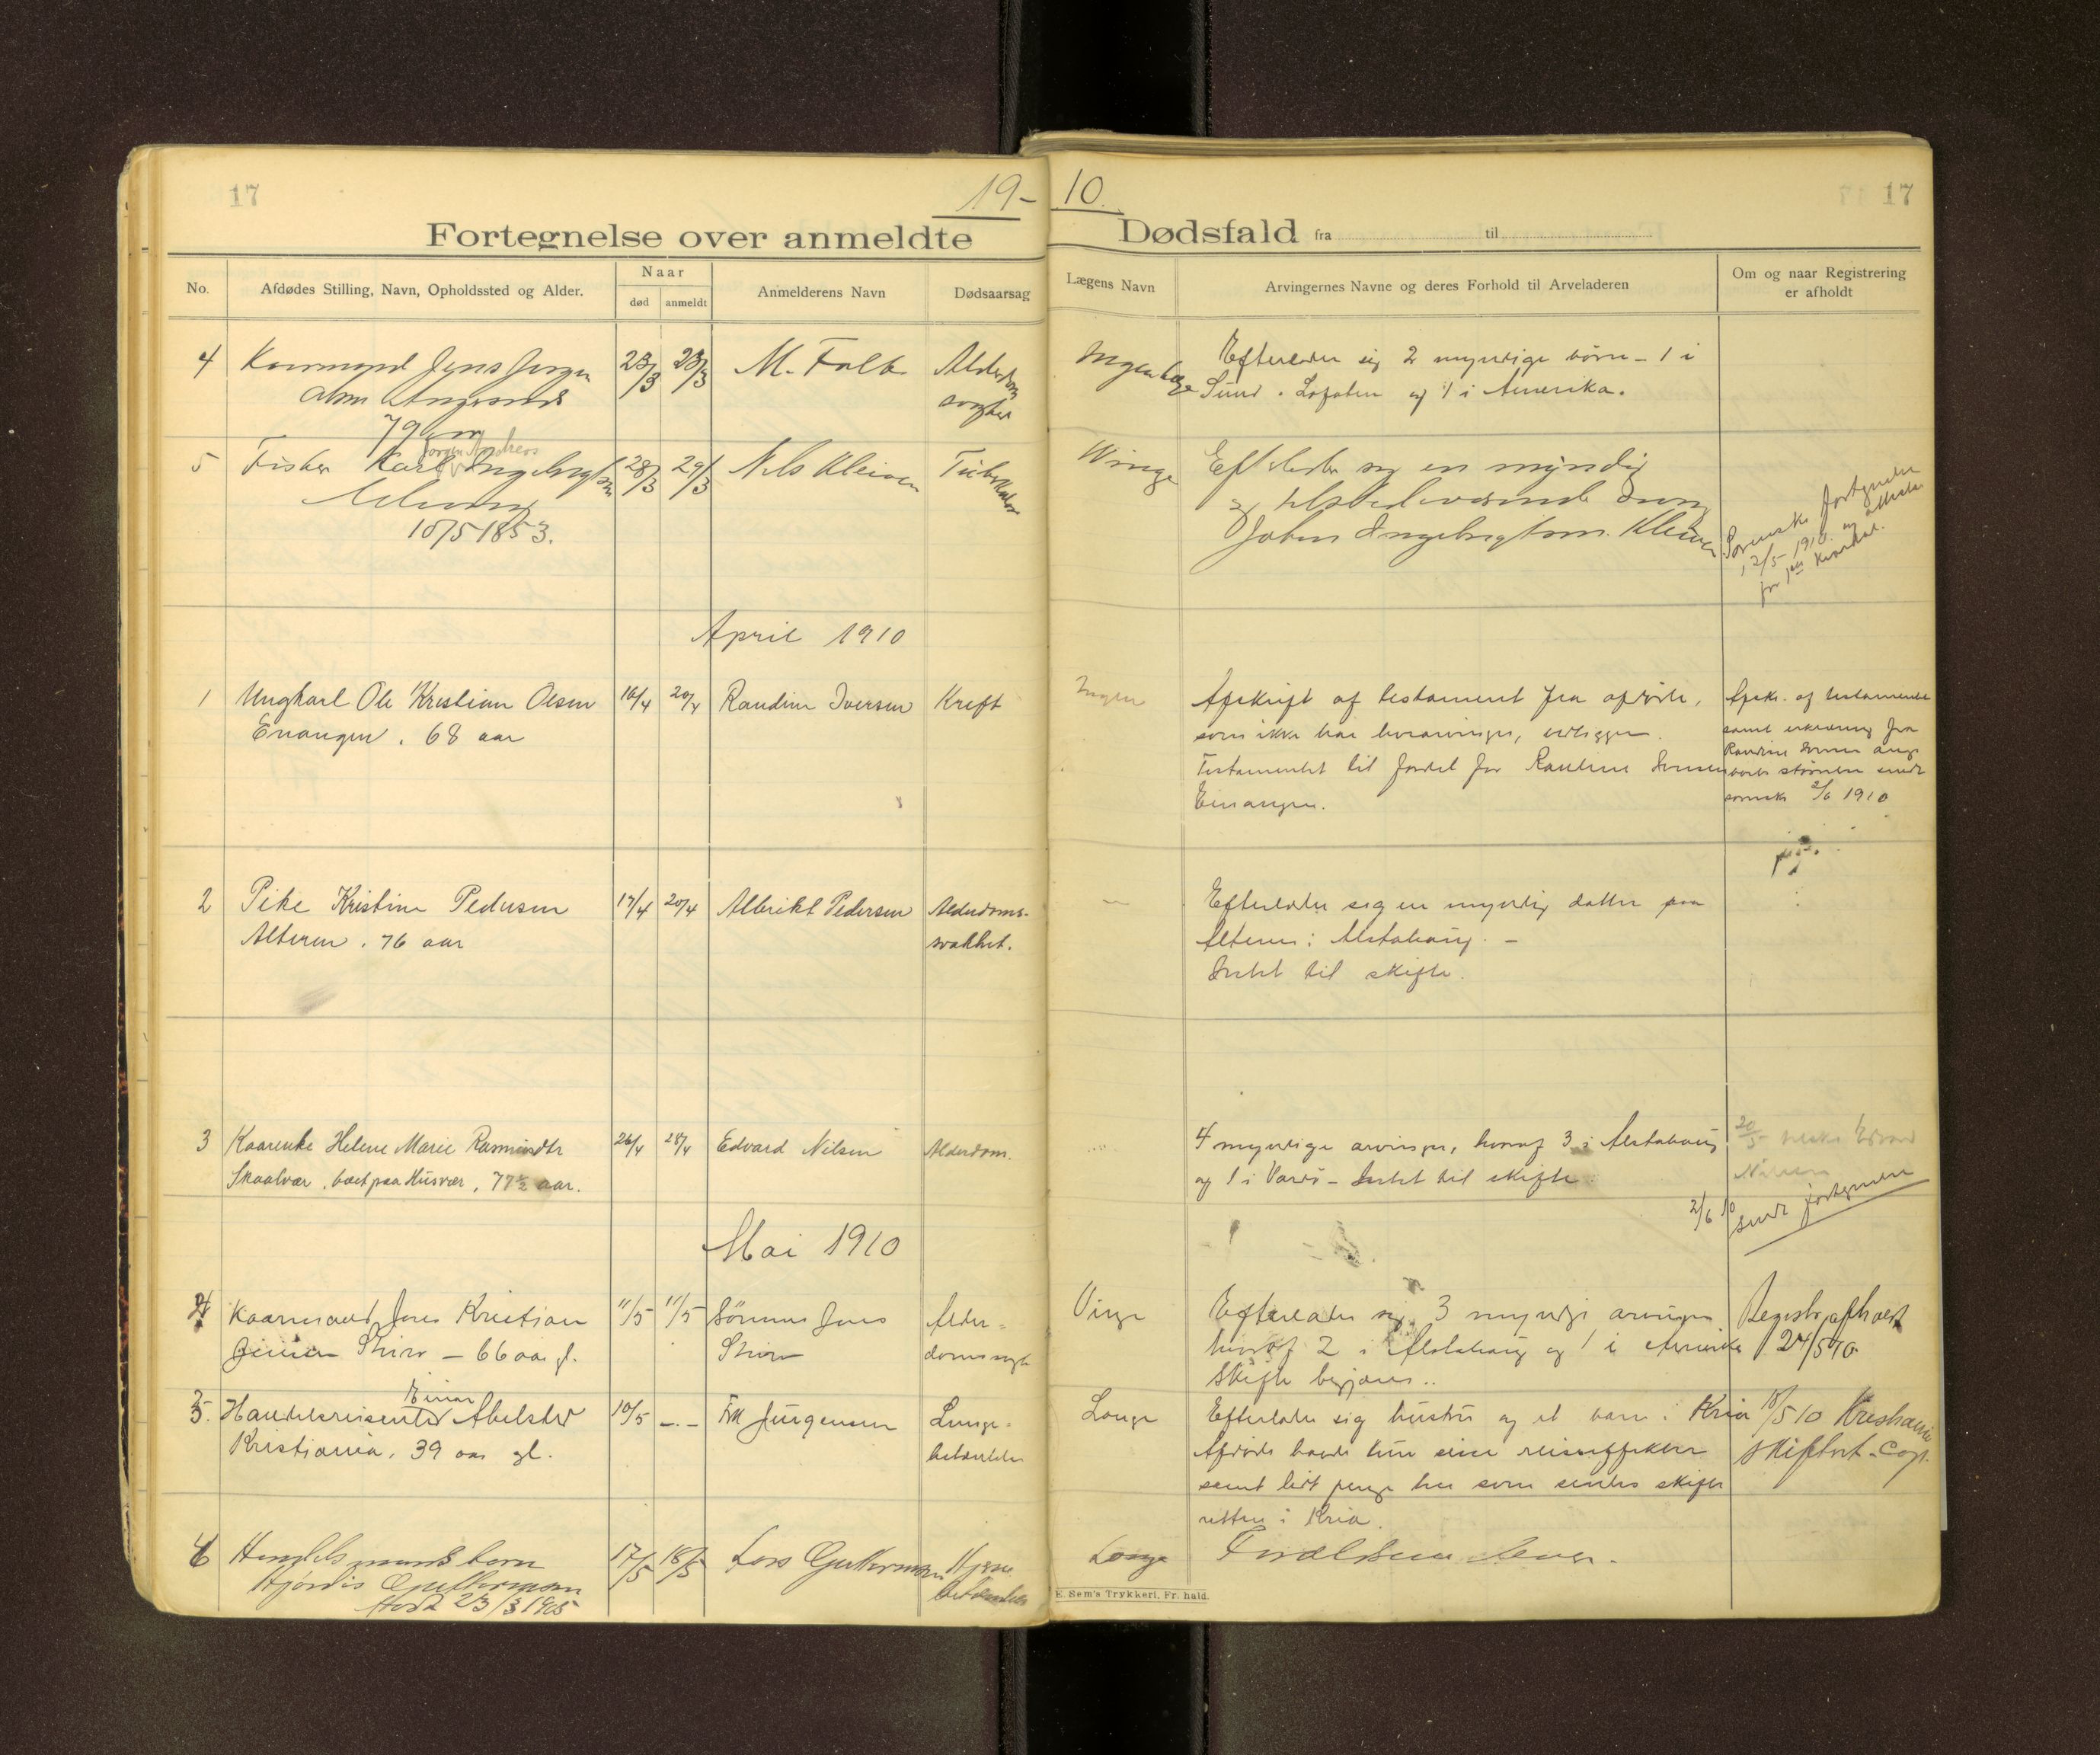 17
19-
10.
17
Fortegnelse over anmeldte
Dødsfald fra til
No.
Afdødes Stilling, Navn, Opholdssted og Alder.
Naar
død
anmeldt
Anmelderens Navn
Dødsaarsag
Lægens Navn
Arvingernes Navne og deres Forhold til Arveladeren
Om og naar Registrering
er afholdt
4
Kaarmand Jens Jørgen
79 aar
23/3
23/3
M. Falk
Alderdoms
Ingen læge
Efterlader sig 2 myndige børn - 1 i
Sund. Lofoten og 1 i Amerika.
5
Fisker Karl Ingebrigtsen
Jørgen Anders
10/5 1853.
28/3
29/3
Nils Kleiven
Tuberkulos
Winge
Efterlader sig en myndig
og tilstedeværende søn
Johan Ingebrigtsen Kleiven
Sorensk. fortegnelse
12/5 1910 og attester
for 1ste kvartal.
April 1910
1
Ungkarl Ole Kristian Olsen
Enangen. 68 aar
16/4
20/4
Randine Iversen
Kreft
Ingen
Afskrift af testament fra afdøde,
som ikke har livsarvinger, vedlegges.
Testamentet til fordel for Randine Iversen
Einangen.
Afskr. af testamentet
samt erklæring fra
Randine Iversen ang.
boets størrelse sendt
sorensk. 2/6 1910
2
Pike Kristine Pedersen
Alteren. 76 aar
17/4
20/4
Albrikt Pedersen
Alderdoms-
svakhet.
Efterlader seg en myndig datter paa
Alteren i Alstahaug. -
Intet til skifte.
3
Kaarenke Helene Marie Rasmusdtr
Skaalvær, boet paa Husvær, 77½ aar.
26/4
28/4
Edvard Nilsen
Alderdom.
4 myndige arvinger, hvoraf 3 i Alstahaug
og 1 i Vardø - Intet til skifte
20/5
Edvard
Nilsen
2/6 10 sendt fortegnelse
Mai 1910
4
Kaarmand Jens Kristian
Stirr - 66 aar gl.
11/5
11/5
Jens
Alder=
domssygd
Vinge
Efterlader sig 3 myndige arvinger
hvoraf 2 i Alstahaug og 1 i Amerika
Skifte begjæres..
Registr. afholdt
24/5 10.
5.
Handelsreisende Abelsted
Einar
Kristiania. 39 aar gl.
10/5
-.-
Frk Jürgensen
Lunge=
betændelse
Longe
Efterlader sig hustru og et barn i Kria
Afdøde havde kun sine reiseeffekter
samt lidt penge her som sendes skifte
retten i Kria.
18/5 10 Kristiania
skifteret. Cop.
6
Handelsmands barn
Hjørdis Guttormsen
født 23/3 1905
17/5
18/5
Lars Guttormsen
Hjerne
betændelse
Longe
Forældrene lever.
E. Sem's Trykkeri, Fr.hald.